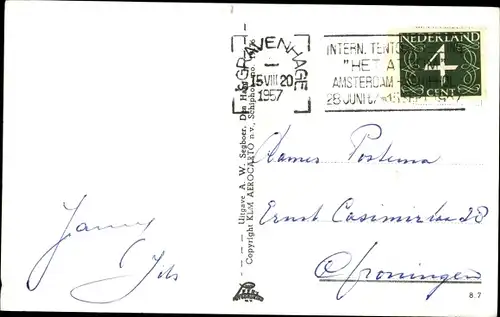 'S GRAVENHAGE
1
15 VIII 20
1957
INTERN. TENTO
"HET A
AMSTERDAM
28 JUNI
NEDERLAND
4
CENT
Uitgave A. W. Segboer, Den Haag
Copyright KLM AEROCARTO n.v., Schiphol
Dames Postema
Ernst Casimirlaan 28
Groningen
Janny
8.7